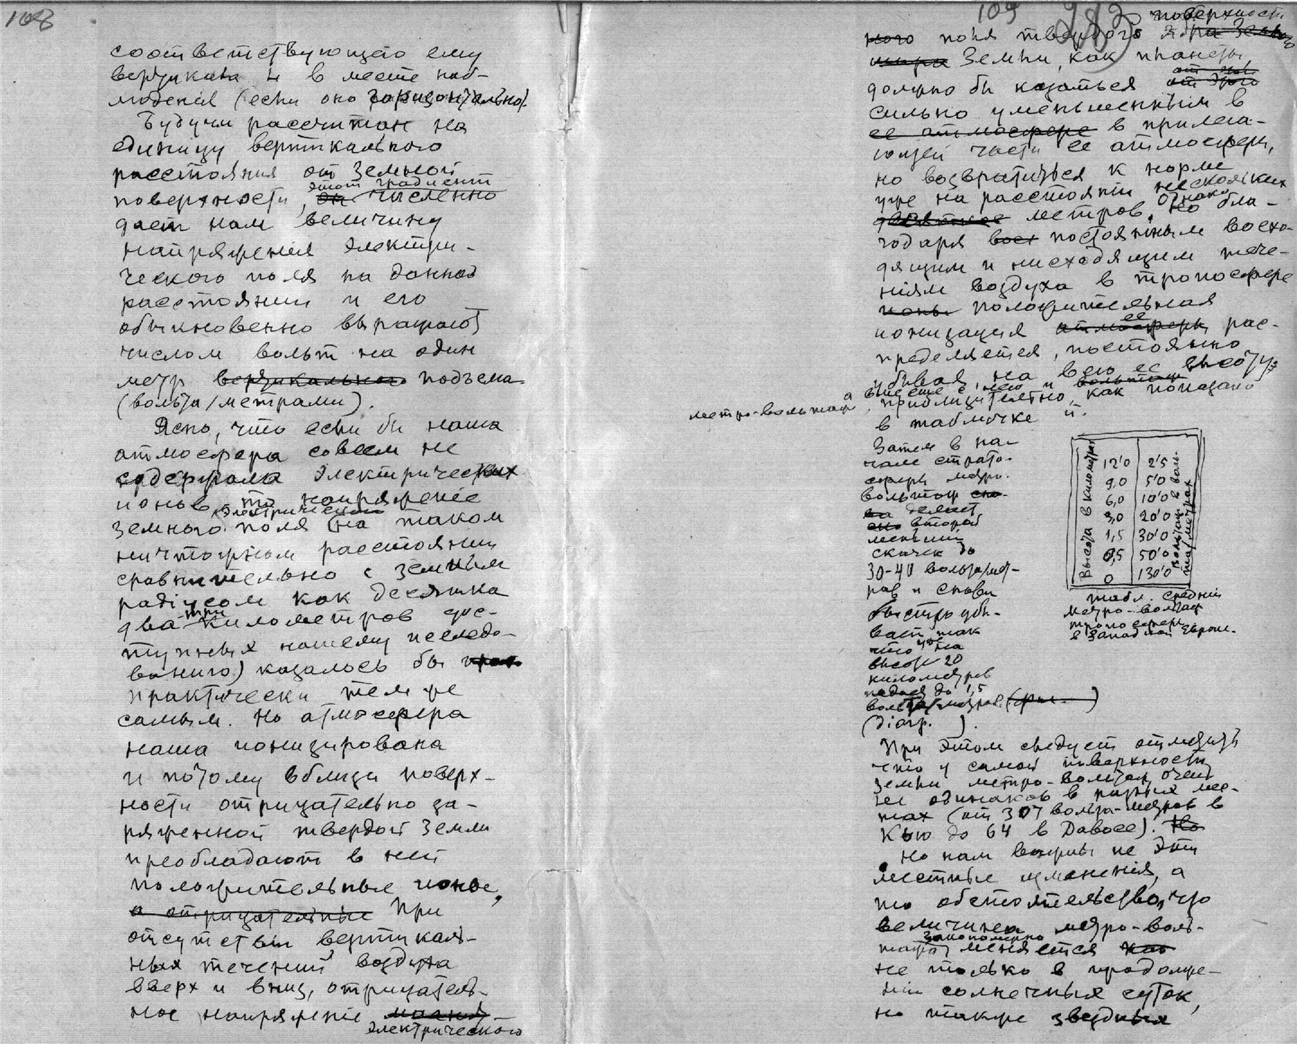 108
соответствующего ему
вертикала н в месте наб-
людения (если оно горизонтально).
Будучи рассчитан на
единицу вертикального
расстояния от земной
этот градиент
поверхности, он численно
дает нам величину
напряжения электри-
ческого поля на данной
расстоянии и его
обыкновенно выражают
числом вольт на один
метр вертикального подъема
(вольта/метрами).
Ясно, что если бы наша
атмосфера совсем не
содержала электрических
ионов, то напряжение
электрического
земного поля (на таком
ничтожном расстоянии
сравнительно с земным
радіусом как десятка
три
два километров дос-
тупных нашему исследо-
ванию) казалось бы
практически тем же
самым. Но атмосфера
наша ионизирована
и потому вблизи поверх-
ности отрицательно за-
ряженной твердой Земли
преобладают в ней
положительные ионы,
а отрицательные При
отсутствіи вертикаль-
ных течений воздуха
вверх и вниз, отрицатель-
ное напряженіе
электрического
109
283
поверхности
ного поля твердого ядра Земного
шара Земли, как планеты
должно бы казаться от этого
сильно уменьшенным в
ее атмосфере в прилега-
ющей части ее атмосферы,
но возвратиться к норме
уже на расстоянии нескольких
Однако
метров, но бла-
годаря постоянным восхо-
дящим и нисходящим тече-
ніям воздуха в тропосфере
ионы положительная
ее
ионизация атмосферы рас-
пределяется, постоянно
убывая, на всю ее высоту,
метро-вольтаж, приблизительно, как показано
в табличке.
Затем в на-
чале страто-
сферы метро-
вольтаж
делает
второй
меньший
скачек до
30-40 вольта/мет-
ров и снова
быстро убы-
вает так
что на
высоте 20
километров
падает до 1,5
вольта/метров
(діагр. ).
Высота в километрах
Вольтаж в вольта/метрах
12'0 2'5
9,0 5'0
6,0 10'0
3,0 20'0
1,5 30'0
0,5 50'0
0 130'0
табл. средний
метро-вольтаж
тропосферы
в Западной Европе.
При этом следует отметить
что у самой поверхности
Земли метро-вольтаж очень
не одинаков в разных мес-
тах (от 307 вольта-метров в
Кью до 64 в Давосе). Но
Но нам важны не эти
местные изменения, а
то обстоятельство, что
величина метро-воль-
закономерно
тажа меняется как
не только в продолже-
ніи солнечных суток,
но также звездных